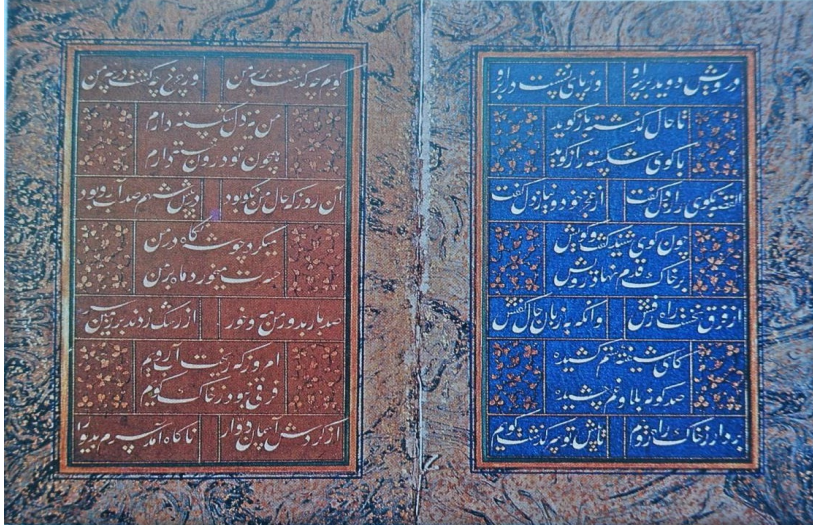 درویش دوید بر پی او وز پای نشست در پی او
تا حال گذشته باز گوید
با گوی شکسته راز گوید
القصه گوی راز دل گفت از خود و نیاز دل گفت
چون گوی شنید گفت و گویش
بر خاک قدم نهاد رویش
از فرق سخت راه رفتش وانگه به زبان حال گفتش
کای شیفته ستم کشیده
صد گونه بلا و غم چشیده
بردار ز خاک راه رویم تا پیش تو سرگذشت گویم
گویم چه گذشت بر سر من وز چرخ چه گشت بر سر من
من نیز دل شکسته دارم
همچون تو درون خسته دارم
آن روز که حال من نکو بود در پیش صد آب رو بود
میگرد چو شاه در من
حسرت میخورد ماه بر من
صد بار بدور من مه و خور از رشک زدند بر زمین سر
امروز که نیست آب رویم
فرقی نبود ز خاک کویم
از گردش آسمان دوار ناگاه آمد سرم به دیوار